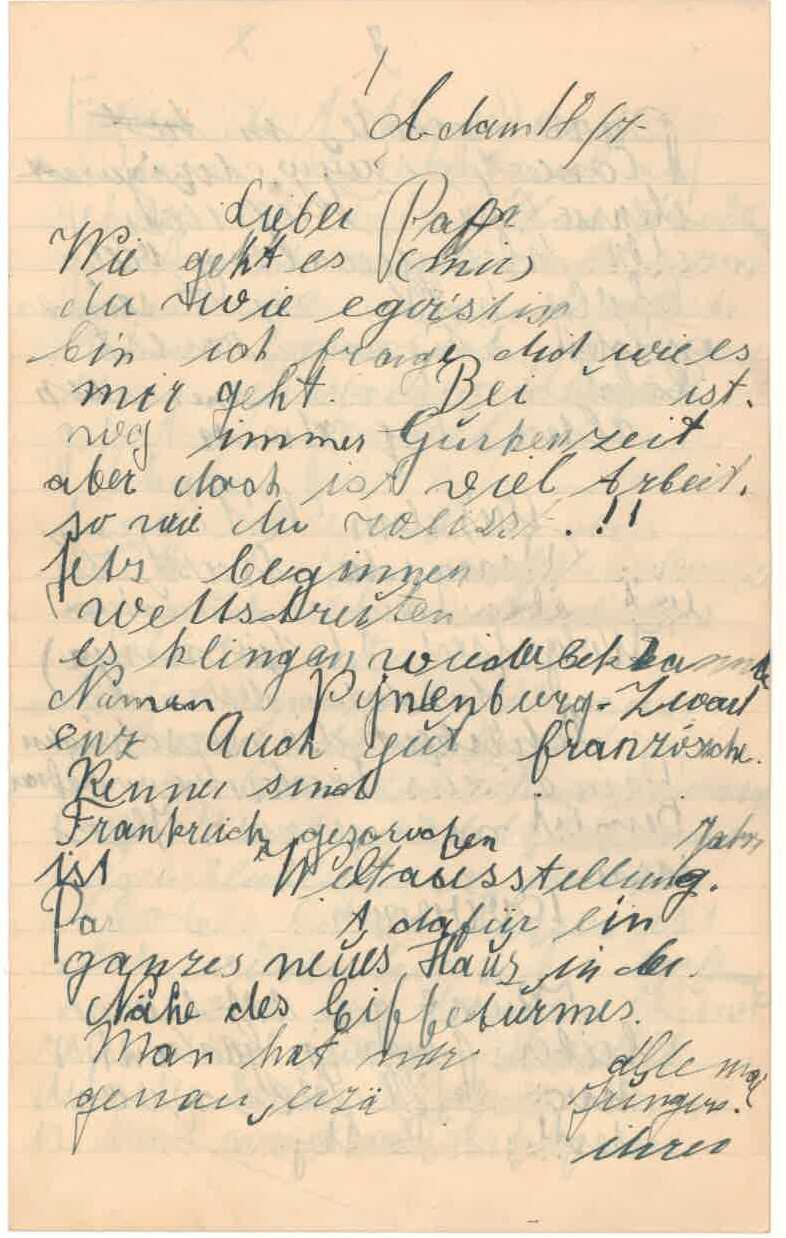 A-dam 18/7-
Lieber Papa
Wie geht es (mir)
du wie egoistin
bin ich frage dich, wie es
mir geht. Bei ist.
immer Gurkenzeit
aber doch ist viel Arbeit.
so wie du weisst.!!
Jetz beginnen
wettstreiten
es klingen wieder bekannte
Naman Pijnenburg-Zwart
enz Auch gut französche.
Renner sind
Frankreich gesprochen Jahr
ist Weltausstellung.
Pa dafür ein
ganzes neues Hauz, in der
Nähe des Eiffeturmes.
Man hat mir alle mal
genau, erzä Jüngers.
ihrer